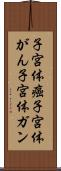 子宮体癌子宮体
がん子宮体ガン